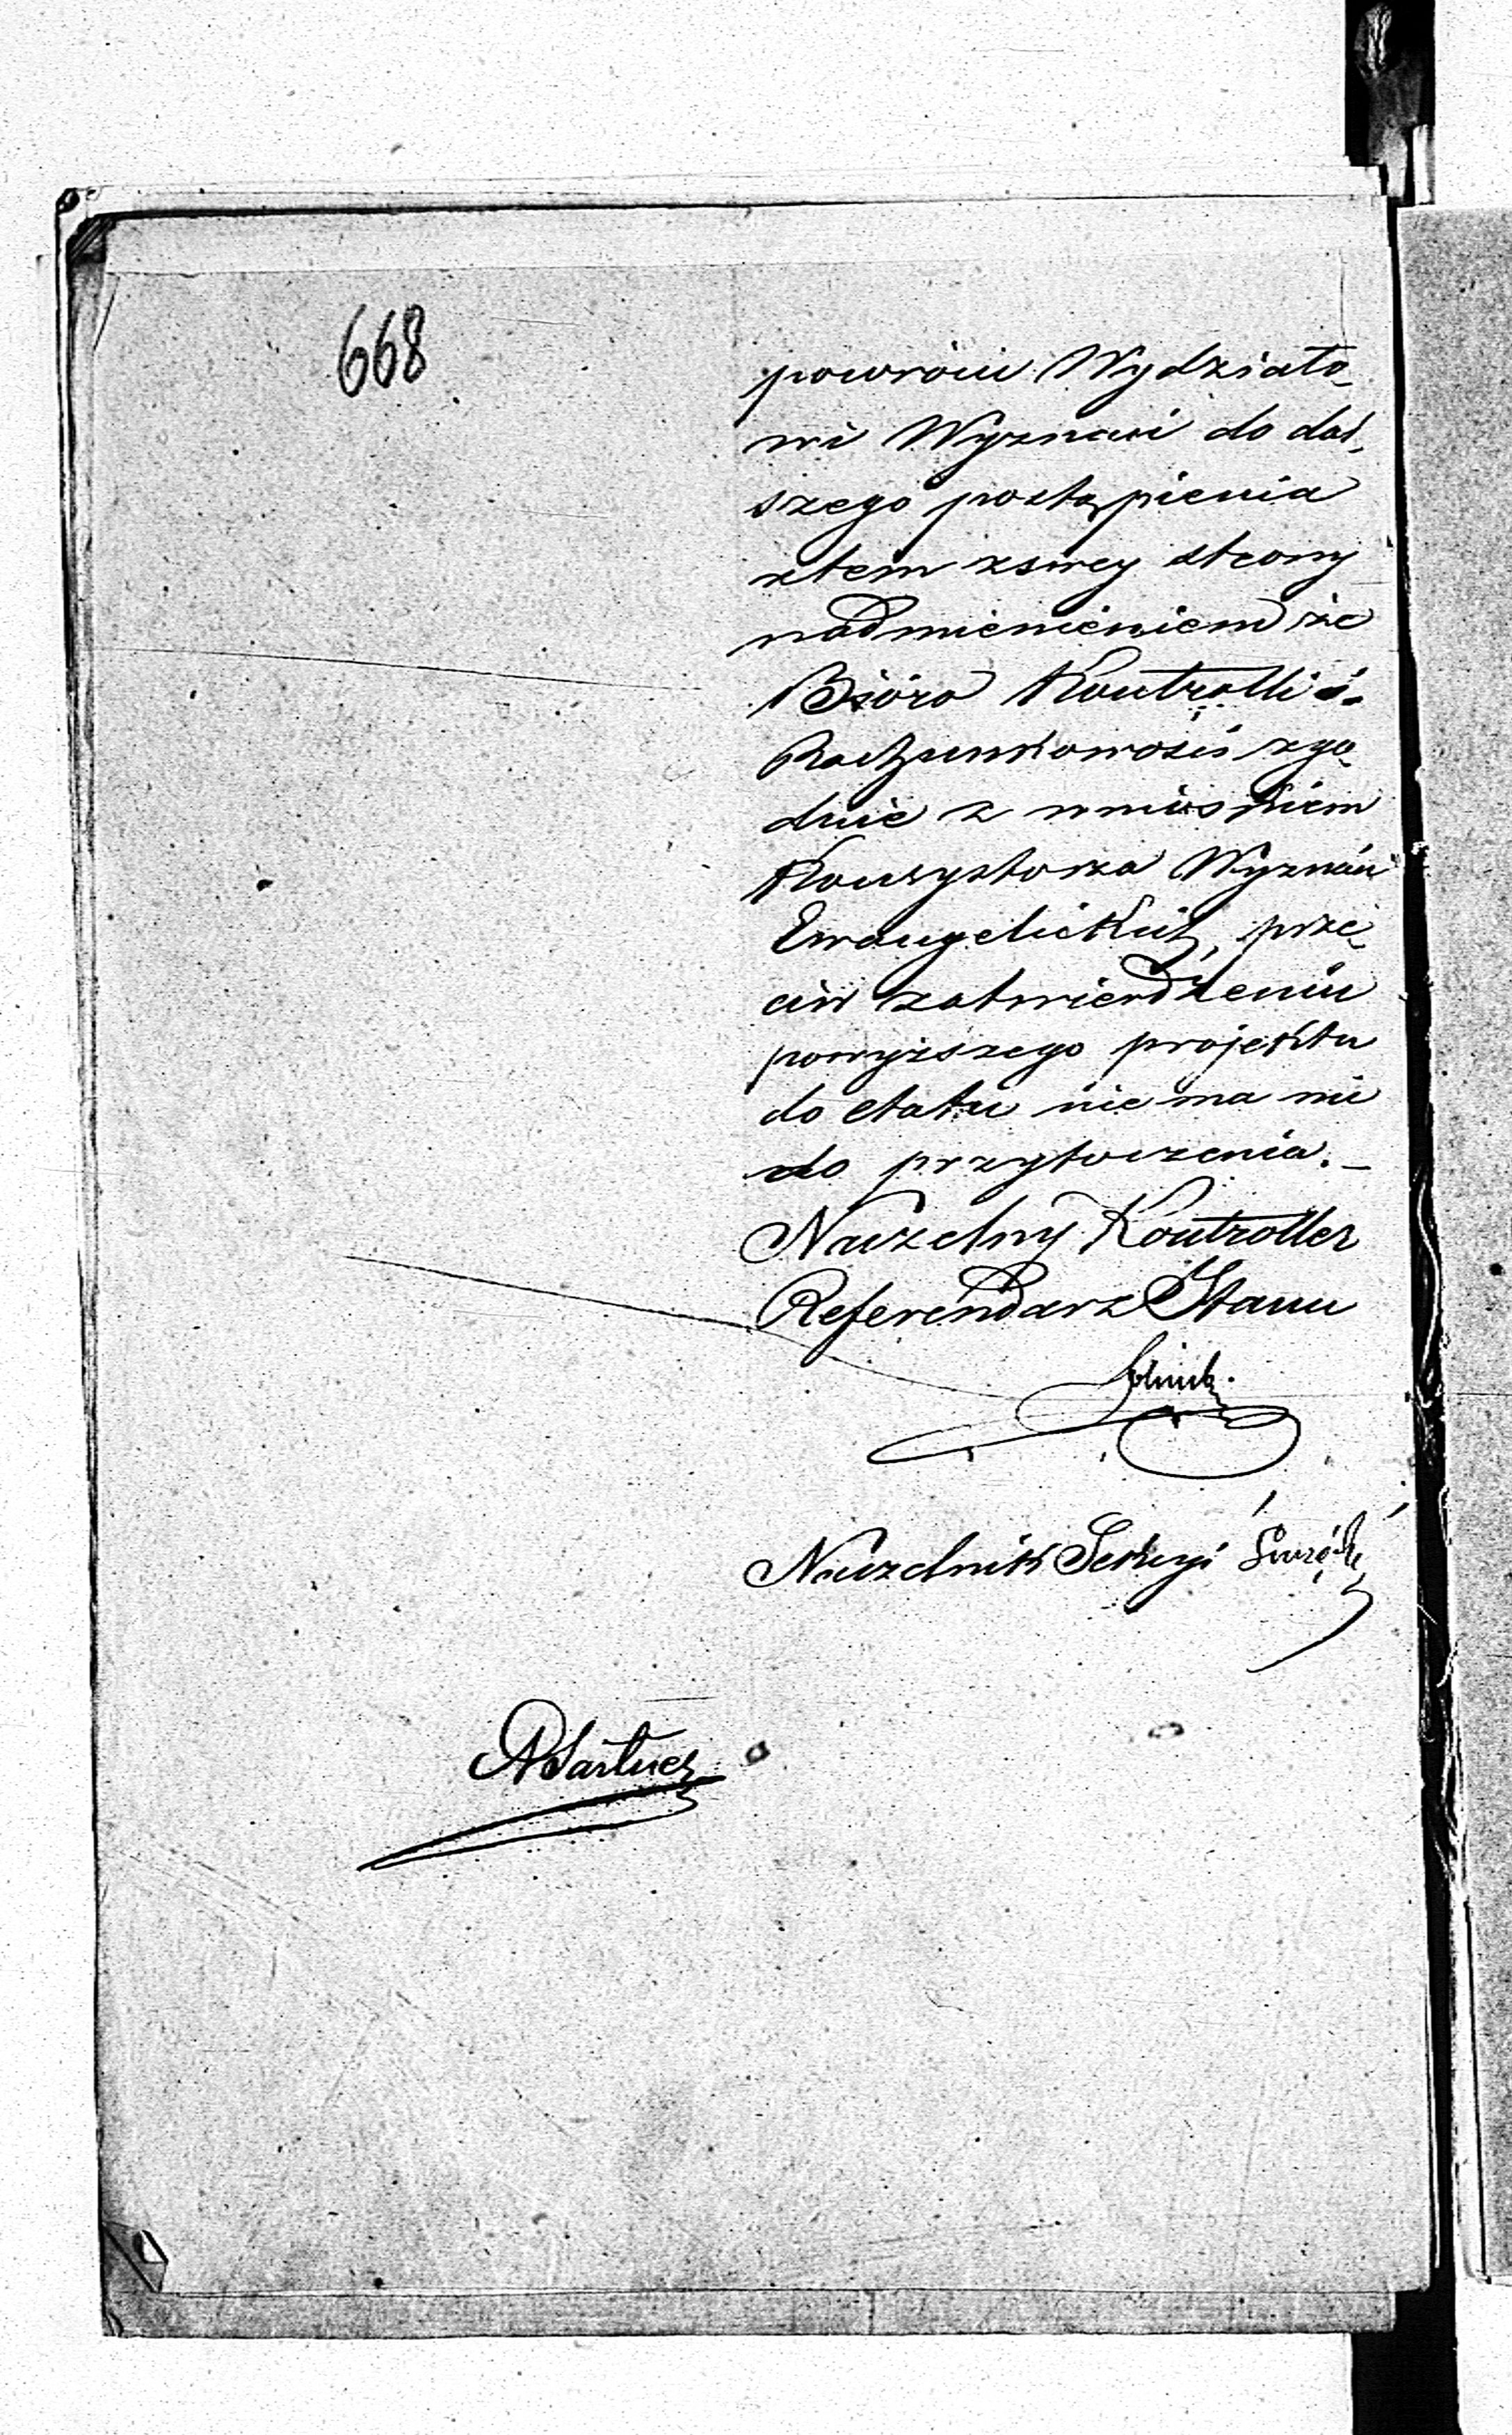 668
powróci Wydziało-
wi Wyznań do dal-
szego postąpienia
ztem zswey strony
nadmienieniem że
Bióro Kontrolli i
Rachunkowości zgo-
dnie z wnioskiem
Konsystorza Wyznań
Ewangelickich, prze-
ciw zatwierdzeniu
powyższego projektu
do etatu nie ma nic
do przytoczenia. –
Naczelny Kontroller
Referendarz Stanu
Naczelnik Sekcyi